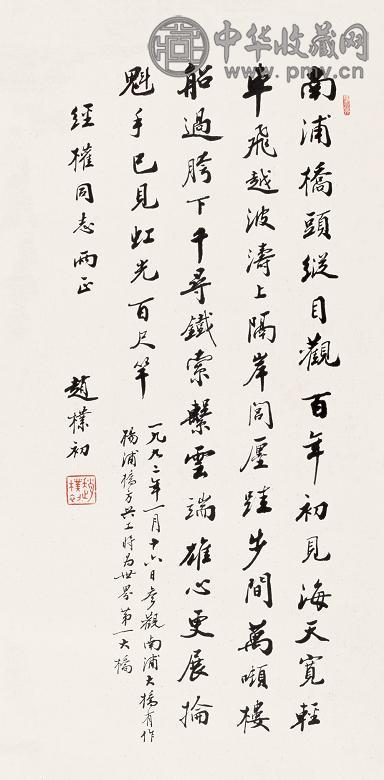 中华收藏网
www.pmv.cn
南浦橋頭縱目觀百年初見海天寬輕
車飛越波濤上隔岸閭廛跬步間萬噸樓
船過胯下千尋鐵索繫雲端雄心更展掄
魁手已見虹光百尺竿
一九九二年一月十六日參觀南浦大橋有作
楊浦橋方興工將為世界第一大橋
經權同志兩正
趙樸初
趙樸初